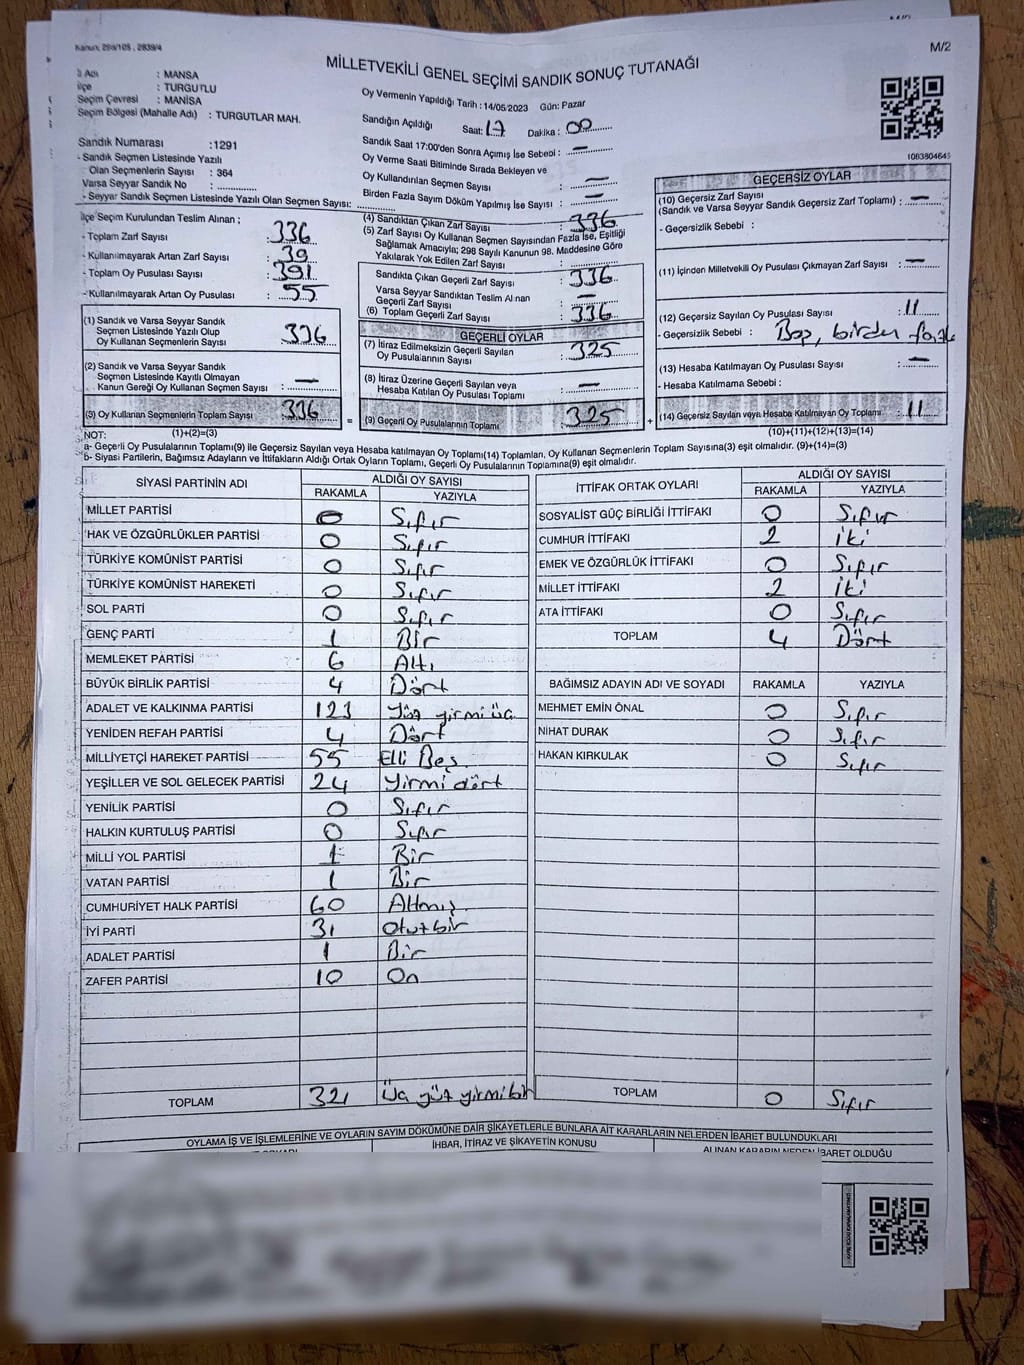 Kanun: 298/105, 2839/4
M/2
MİLLETVEKİLİ GENEL SEÇİMİ SANDIK SONUÇ TUTANAĞI
İl Adı : MANSA
İlçe : TURGUTLU
Seçim Çevresi : MANİSA
Seçim Bölgesi (Mahalle Adı) : TURGUTLAR MAH.
Sandık Numarası :1291
- Sandık Seçmen Listesinde Yazılı
Olan Seçmenlerin Sayısı : 364
Varsa Seyyar Sandık No : ..............
- Seyyar Sandık Seçmen Listesinde Yazılı Olan Seçmen Sayısı: ..............
Oy Vermenin Yapıldığı Tarih : 14/05/2023 Gün: Pazar
Sandığın Açıldığı Saat: 17 Dakika : 00
Sandık Saat 17:00'den Sonra Açılmış İse Sebebi : —
Oy Verme Saati Bitiminde Sırada Bekleyen ve
Oy Kullandırılan Seçmen Sayısı : —
Birden Fazla Sayım Döküm Yapılmış İse Sayısı : —
1083804645
İlçe Seçim Kurulundan Teslim Alınan ;
- Toplam Zarf Sayısı : 336
- Kullanılmayarak Artan Zarf Sayısı : 39
- Toplam Oy Pusulası Sayısı : 391
- Kullanılmayarak Artan Oy Pusulası : 55
(1) Sandık ve Varsa Seyyar Sandık
Seçmen Listesinde Yazılı Olup
Oy Kullanan Seçmenlerin Sayısı : 336
(2) Sandık ve Varsa Seyyar Sandık
Seçmen Listesinde Kayıtlı Olmayan
Kanun Gereği Oy Kullanan Seçmen Sayısı : —
(3) Oy Kullanan Seçmenlerin Toplam Sayısı : 336
(4) Sandıktan Çıkan Zarf Sayısı : 336
(5) Zarf Sayısı Oy Kullanan Seçmen Sayısından Fazla İse, Eşitliği
Sağlamak Amacıyla; 298 Sayılı Kanunun 98. Maddesine Göre
Yakılarak Yok Edilen Zarf Sayısı : ..............
Sandıkta Çıkan Geçerli Zarf Sayısı : 336
Varsa Seyyar Sandıktan Teslim Alınan
Geçerli Zarf Sayısı : —
(6) Toplam Geçerli Zarf Sayısı : 336
GEÇERLİ OYLAR
(7) İtiraz Edilmeksizin Geçerli Sayılan
Oy Pusulalarının Sayısı : 325
(8) İtiraz Üzerine Geçerli Sayılan veya
Hesaba Katılan Oy Pusulası Toplamı : —
= (9) Geçerli Oy Pusulalarının Toplamı : 325 +
GEÇERSİZ OYLAR
(10) Geçersiz Zarf Sayısı
(Sandık ve Varsa Seyyar Sandık Geçersiz Zarf Toplamı) : —
- Geçersizlik Sebebi :
(11) İçinden Milletvekili Oy Pusulası Çıkmayan Zarf Sayısı : —
(12) Geçersiz Sayılan Oy Pusulası Sayısı : 11
- Geçersizlik Sebebi : Boş, birden fazla
(13) Hesaba Katılmayan Oy Pusulası Sayısı : —
- Hesaba Katılmama Sebebi :
(14) Geçersiz Sayılan veya Hesaba Katılmayan Oy Toplamı : 11
NOT: (1)+(2)=(3)
(10)+(11)+(12)+(13)=(14)
a- Geçerli Oy Pusulalarının Toplamı(9) ile Geçersiz Sayılan veya Hesaba katılmayan Oy Toplamı(14) Toplamları, Oy Kullanan Seçmenlerin Toplam Sayısına(3) eşit olmalıdır. (9)+(14)=(3)
b- Siyasi Partilerin, Bağımsız Adayların ve İttifakların Aldığı Ortak Oyların Toplamı, Geçerli Oy Pusulalarının Toplamına(9) eşit olmalıdır.
SİYASİ PARTİNİN ADI ALDIĞI OY SAYISI
RAKAMLA YAZIYLA
MİLLET PARTİSİ 0 Sıfır
HAK VE ÖZGÜRLÜKLER PARTİSİ 0 Sıfır
TÜRKİYE KOMÜNİST PARTİSİ 0 Sıfır
TÜRKİYE KOMÜNİST HAREKETİ 0 Sıfır
SOL PARTİ 0 Sıfır
GENÇ PARTİ 1 Bir
MEMLEKET PARTİSİ 6 Altı
BÜYÜK BİRLİK PARTİSİ 4 Dört
ADALET VE KALKINMA PARTİSİ 123 Yüz yirmi üç
YENİDEN REFAH PARTİSİ 4 Dört
MİLLİYETÇİ HAREKET PARTİSİ 55 Elli Beş
YEŞİLLER VE SOL GELECEK PARTİSİ 24 Yirmi dört
YENİLİK PARTİSİ 0 Sıfır
HALKIN KURTULUŞ PARTİSİ 0 Sıfır
MİLLİ YOL PARTİSİ 1 Bir
VATAN PARTİSİ 1 Bir
CUMHURİYET HALK PARTİSİ 60 Altmış
İYİ PARTİ 31 Otuz bir
ADALET PARTİSİ 1 Bir
ZAFER PARTİSİ 10 On
TOPLAM 321 Üç yüz yirmi bir
İTTİFAK ORTAK OYLARI ALDIĞI OY SAYISI
RAKAMLA YAZIYLA
SOSYALİST GÜÇ BİRLİĞİ İTTİFAKI 0 Sıfır
CUMHUR İTTİFAKI 2 İki
EMEK VE ÖZGÜRLÜK İTTİFAKI 0 Sıfır
MİLLET İTTİFAKI 2 İki
ATA İTTİFAKI 0 Sıfır
TOPLAM 4 Dört
BAĞIMSIZ ADAYIN ADI VE SOYADI RAKAMLA YAZIYLA
MEHMET EMİN ÖNAL 0 Sıfır
NİHAT DURAK 0 Sıfır
HAKAN KIRKULAK 0 Sıfır
TOPLAM 0 Sıfır
OYLAMA İŞ VE İŞLEMLERİNE VE OYLARIN SAYIM DÖKÜMÜNE DAİR ŞİKAYETLERLE BUNLARA AİT KARARLARIN NELERDEN İBARET BULUNDUKLARI
İHBAR, İTİRAZ VE ŞİKAYETİN KONUSU
ALINAN KARARIN NEDEN İBARET OLDUĞU